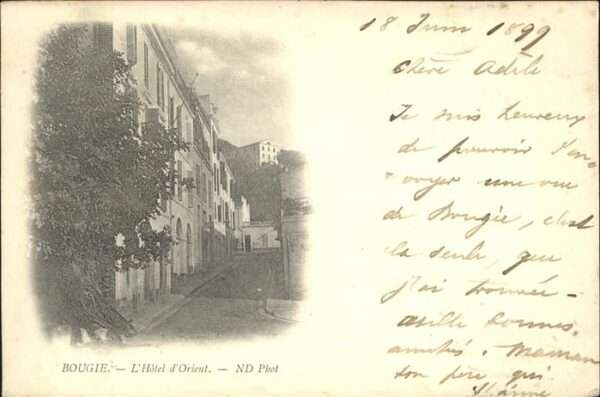 18 Juin 1899
Chère Adèle
Je suis heureux
de pouvoir t'en-
voyer une vue
de Bougie, c'est
la seule, que
j'ai trouvée -
mille bonnes
amitiés. Maman
ton père qui
BOUGIE. — L'Hôtel d'Orient. — ND Phot